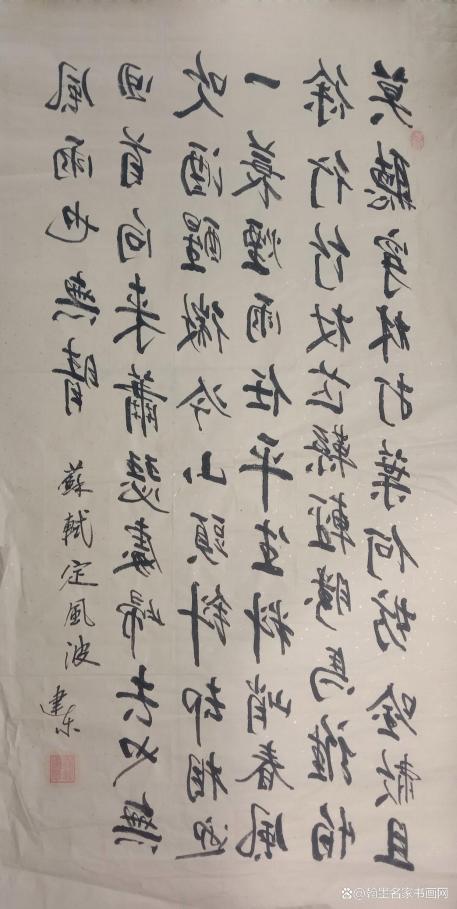 莫聽穿林打葉何妨吟嘯且
徐行竹杖芒鞋輕勝馬誰怕
一蓑煙雨任平生料峭春風
吹酒醒微冷山頭斜却相迎
回首向來蕭瑟處歸去無
風雨也無晴
蘇軾定風波
建东
@翰墨名家书画网